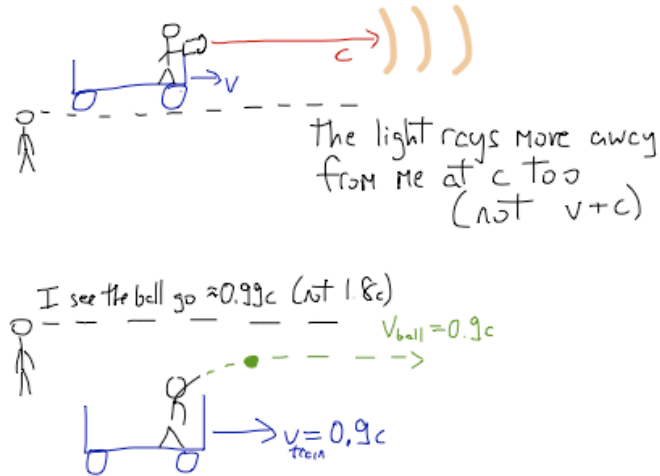 c
v
the light rays move away
from me at c too
(not v+c)
I see the ball go ≈0.99c (not 1.8c)
Vball=0.9c
v=0.9c
train